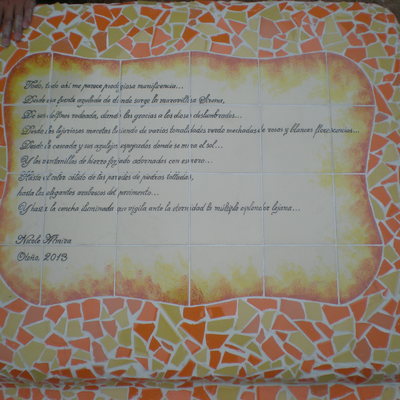 Todo, todo ahí me parece prodigiosa munificencia...
Desde esa fuente azulada de donde surge la maravillosa Sirena,
De sus delfines rodeada, dando las gracias a los dioses deslumbrados...
Desde las lujuriosas macetas luciendo de varias tonalidades verde mechadas de rosas y blancas florescencias...
Desde la cascada y sus azulejos espejados donde se mira el sol...
Y las ventanillas de hierro forjado adornadas con esmero...
Hasta el color cálido de las paredes de piedras talladas,
hasta los elegantes arabescos del pavimento...
Y hasta la concha iluminada que vigila ante la eternidad la múltiple esplendor lejana...
Nicole Almira
Otoño, 2013